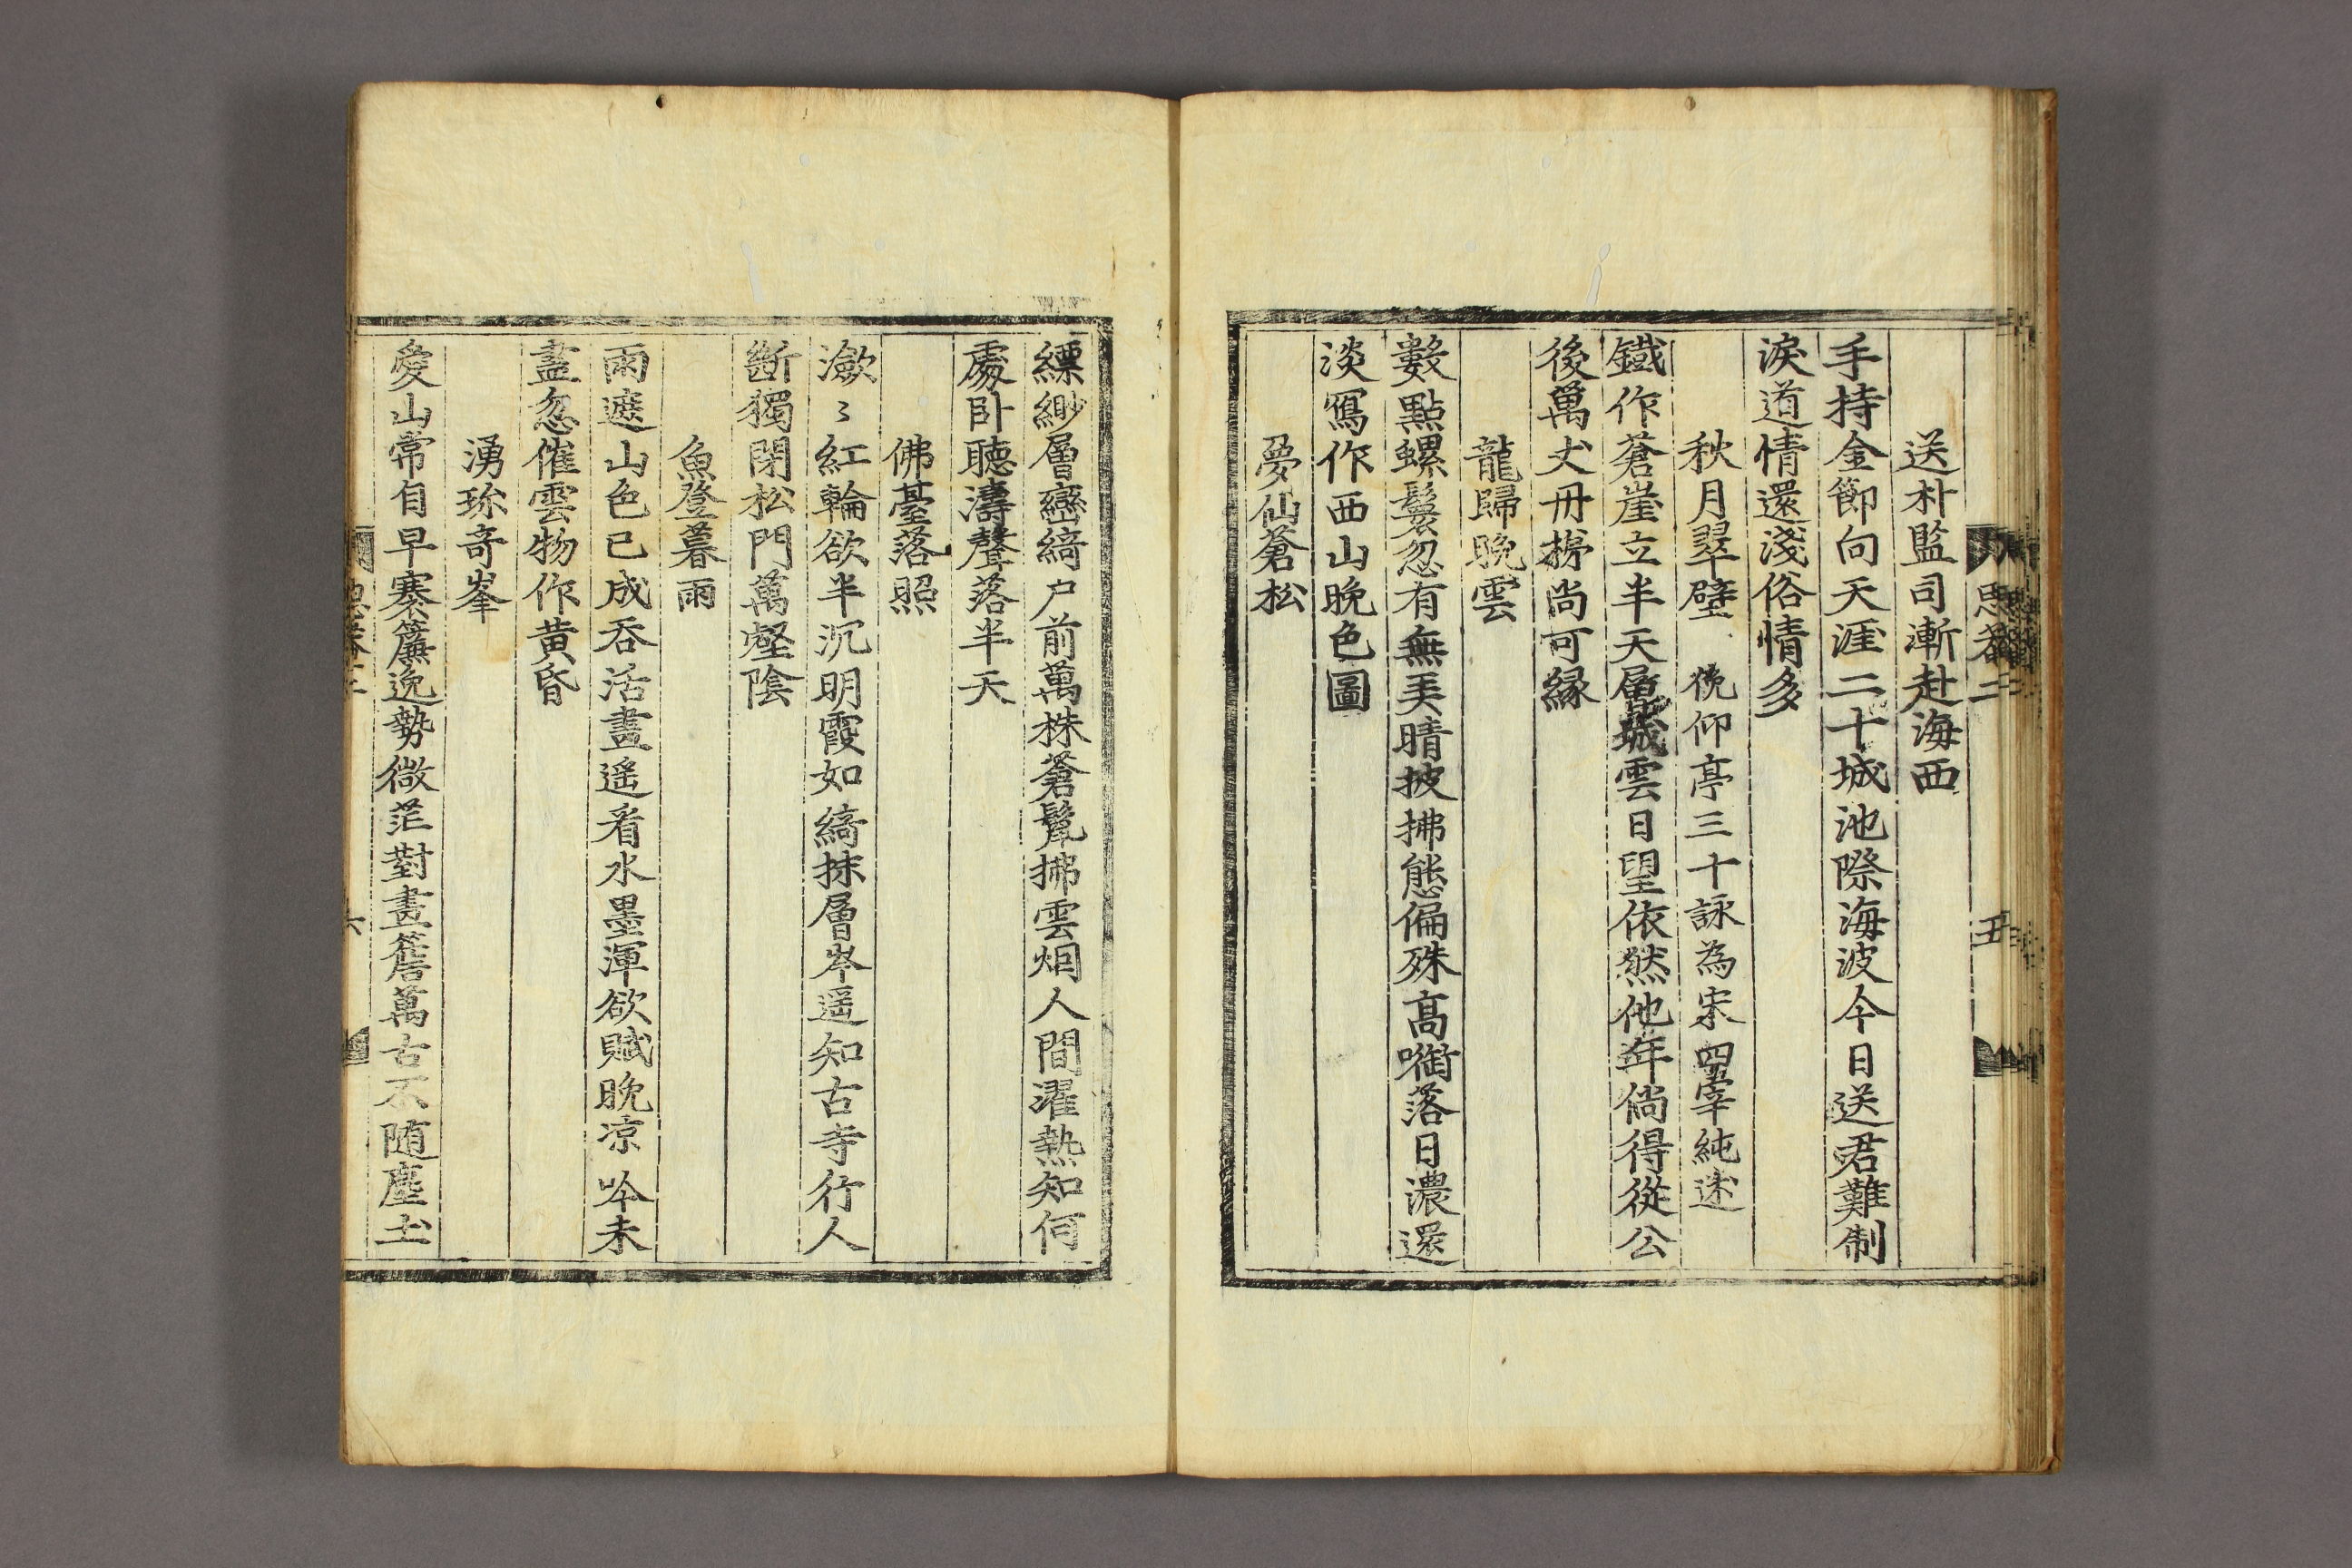 思菴二 五
送朴監司漸赴海西
手持金節向天涯二十城池際海波今日送君難制
淚道情還淺俗情多
秋月翠壁 俛仰亭三十詠為宋四宰純述
鐵作蒼崖立半天層城雲日望依然他年倘得從公
後萬丈丹梯尚可緣
龍歸晩雲
數點螺鬟忽有無弄晴披拂態偏殊高㗸落日濃還
淡寫作西山晩色圖
夢仙蒼松
縹緲層巒綺戶前萬株蒼髯拂雲烟人間濯熱知何
處卧聽濤聲落半天
佛臺落照
瀲〻紅輪欲半沉明霞如綺抹層岑遥知古寺行人
斷獨閉松門萬壑陰
魚登暮雨
雨遮山色已成呑活畫遥看水墨渾欲賦晩凉吟未
盡忽催雲物作黄昏
湧珎奇峯
愛山常自早褰簾逸勢微茫對畫簷萬古不随塵土
思菴二 六